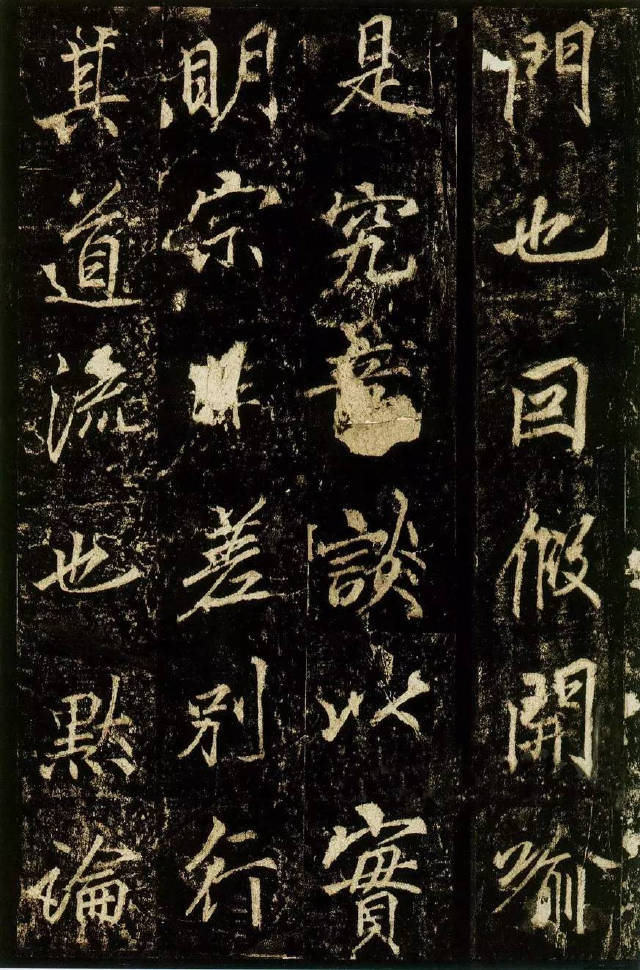 門也因假開喻
是究談以實
明宗差別行
其道流也默論